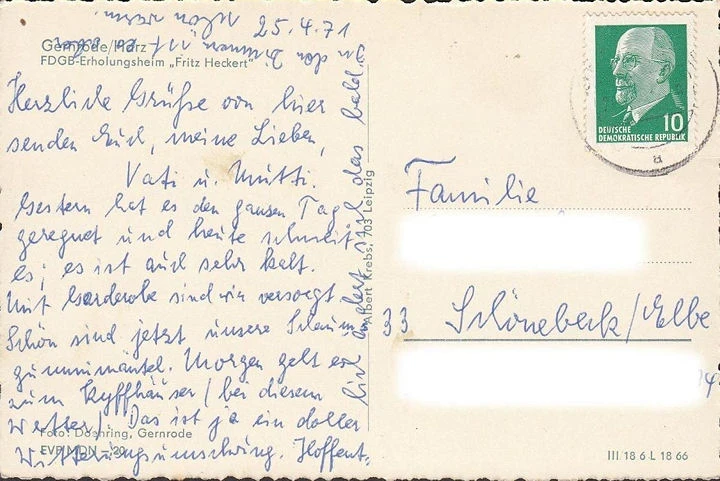 25.4.71
Gernrode/Harz
FDGB-Erholungsheim „Fritz Heckert"
Herzliche Grüße von hier
senden Euch, meine Lieben,
Vati u. Mutti.
Gestern hat es den ganzen Tag
geregnet und heute schneit
es; es ist auch sehr kalt.
Mit Garderobe sind wir versorgt.
Schön sind jetzt unsere Schaum-
gummimäntel. Morgen geht es
zum Kyffhäuser (bei diesem
Wetter). Das ist ja ein doller
Witterungsumschwung. Hoffent-
lich ändert sich das bald.
In den Zimmern ist es
Foto: Doehring, Gernrode
EVP MDN –,20
Albert Krebs, 703 Leipzig
10
DEUTSCHE
DEMOKRATISCHE REPUBLIK
a
Familie
33 Schönebeck/Elbe
III 18 6 L 18 66